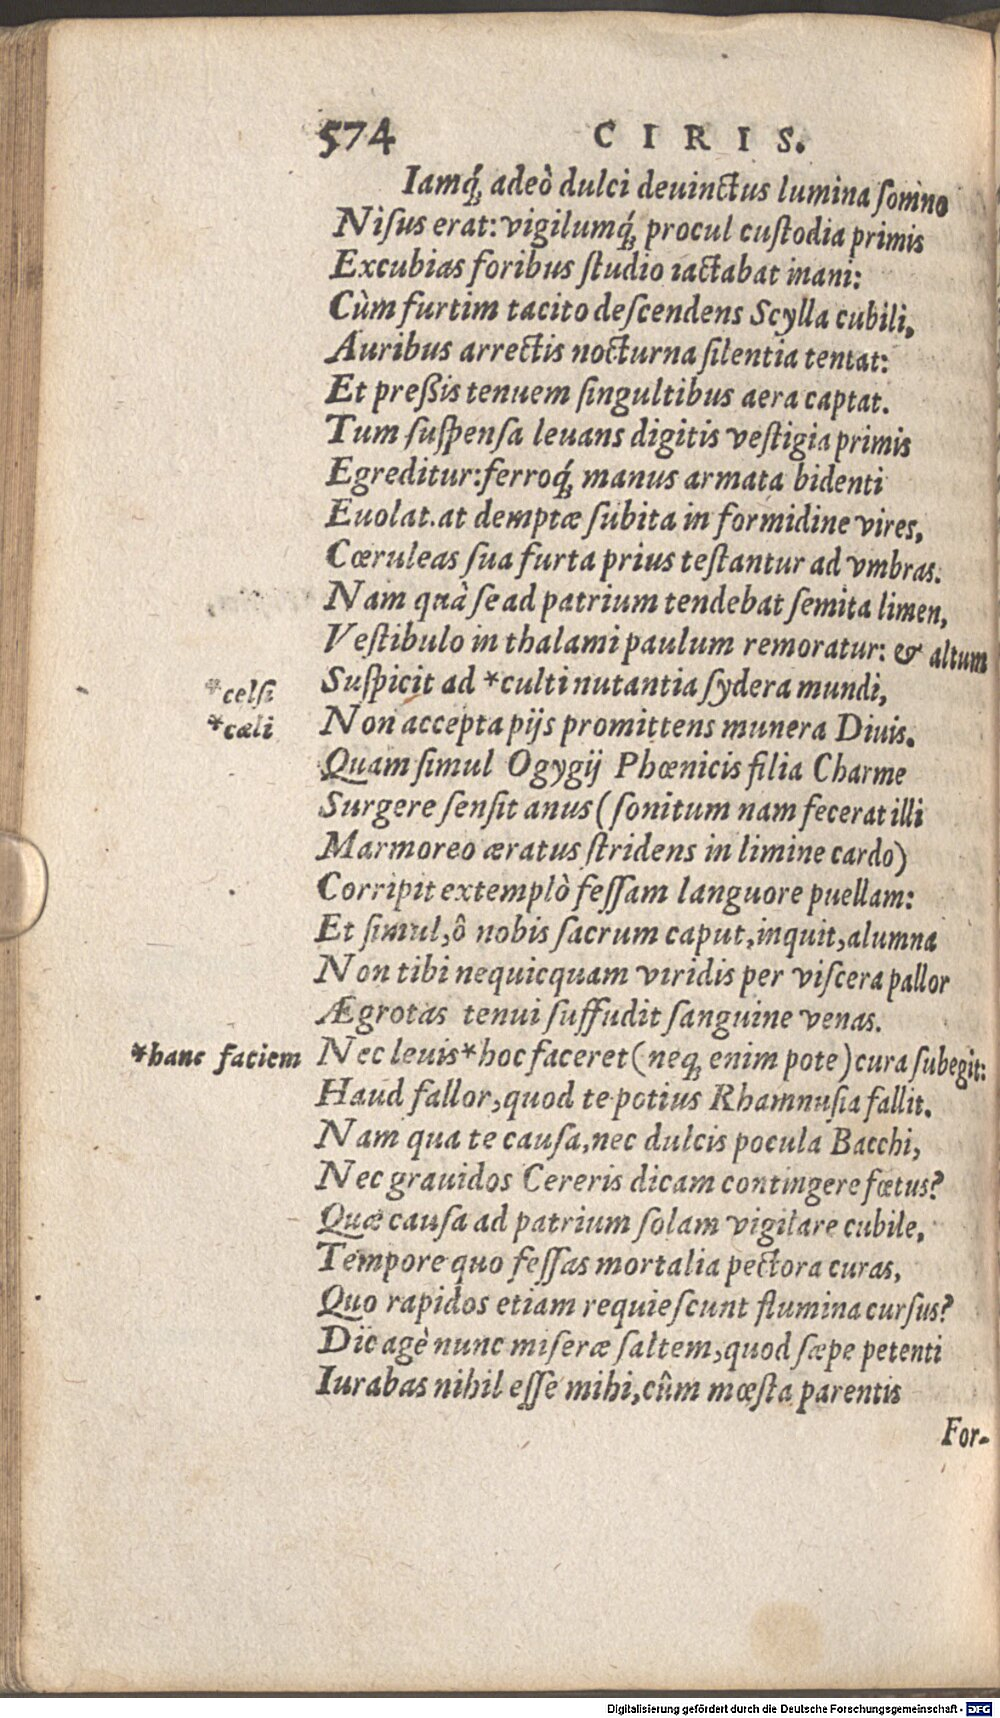 574 CIRIS.
Iamq́; adeò dulci deuinctus lumina somno
Niſus erat: vigilumq́; procul cuſtodia primis
Excubias foribus ſtudio iactabat inani:
Cùm furtim tacito deſcendens Scylla cubili,
Auribus arrectis nocturna ſilentia tentat:
Et preßis tenuem ſingultibus aera captat.
Tum ſuſpenſa leuans digitis veſtigia primis
Egreditur: ferroq́; manus armata bidenti
Euolat. at demptæ ſubita in formidine vires,
Cœruleas ſua furta prius teſtantur ad vmbras.
Nam quà ſe ad patrium tendebat ſemita limen,
Veſtibulo in thalami paulum remoratur: & altum
*celſi Suſpicit ad *culti nutantia ſydera mundi,
*cæli Non accepta pijs promittens munera Diuis.
Quam ſimul Ogygij Phœnicis filia Charme
Surgere ſenſit anus (ſonitum nam fecerat illi
Marmoreo æratus ſtridens in limine cardo)
Corripit extemplò feſſam languore puellam:
Et ſimul, ô nobis ſacrum caput, inquit, alumna
Non tibi nequicquam viridis per viſcera pallor
Ægrotas tenui ſuffudit ſanguine venas.
*hanc faciem Nec leuis *hoc faceret (neq; enim pote) cura ſubegit:
Haud fallor, quod te potius Rhamnuſia fallit.
Nam qua te cauſa, nec dulcis pocula Bacchi,
Nec grauidos Cereris dicam contingere fœtus?
Quæ cauſa ad patrium ſolam vigilare cubile,
Tempore quo feſſas mortalia pectora curas,
Quo rapidos etiam requieſcunt flumina curſus?
Dic agè nunc miſeræ ſaltem, quod ſæpe petenti
Iurabas nihil eſſe mihi, cûm mœſta parentis
For-
Digitalisierung gefördert durch die Deutsche Forschungsgemeinschaft - DFG